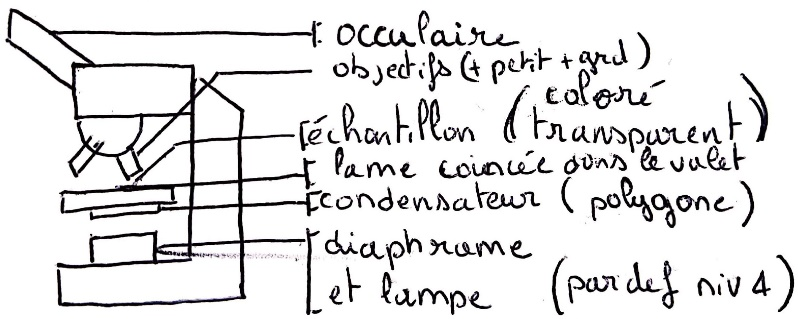 occulaire
objectifs (+ petit + grd)
coloré
échantillon (transparent)
lame coincée dans le valet
condensateur (polygone)
diaphrame
et lampe (par def niv 4)